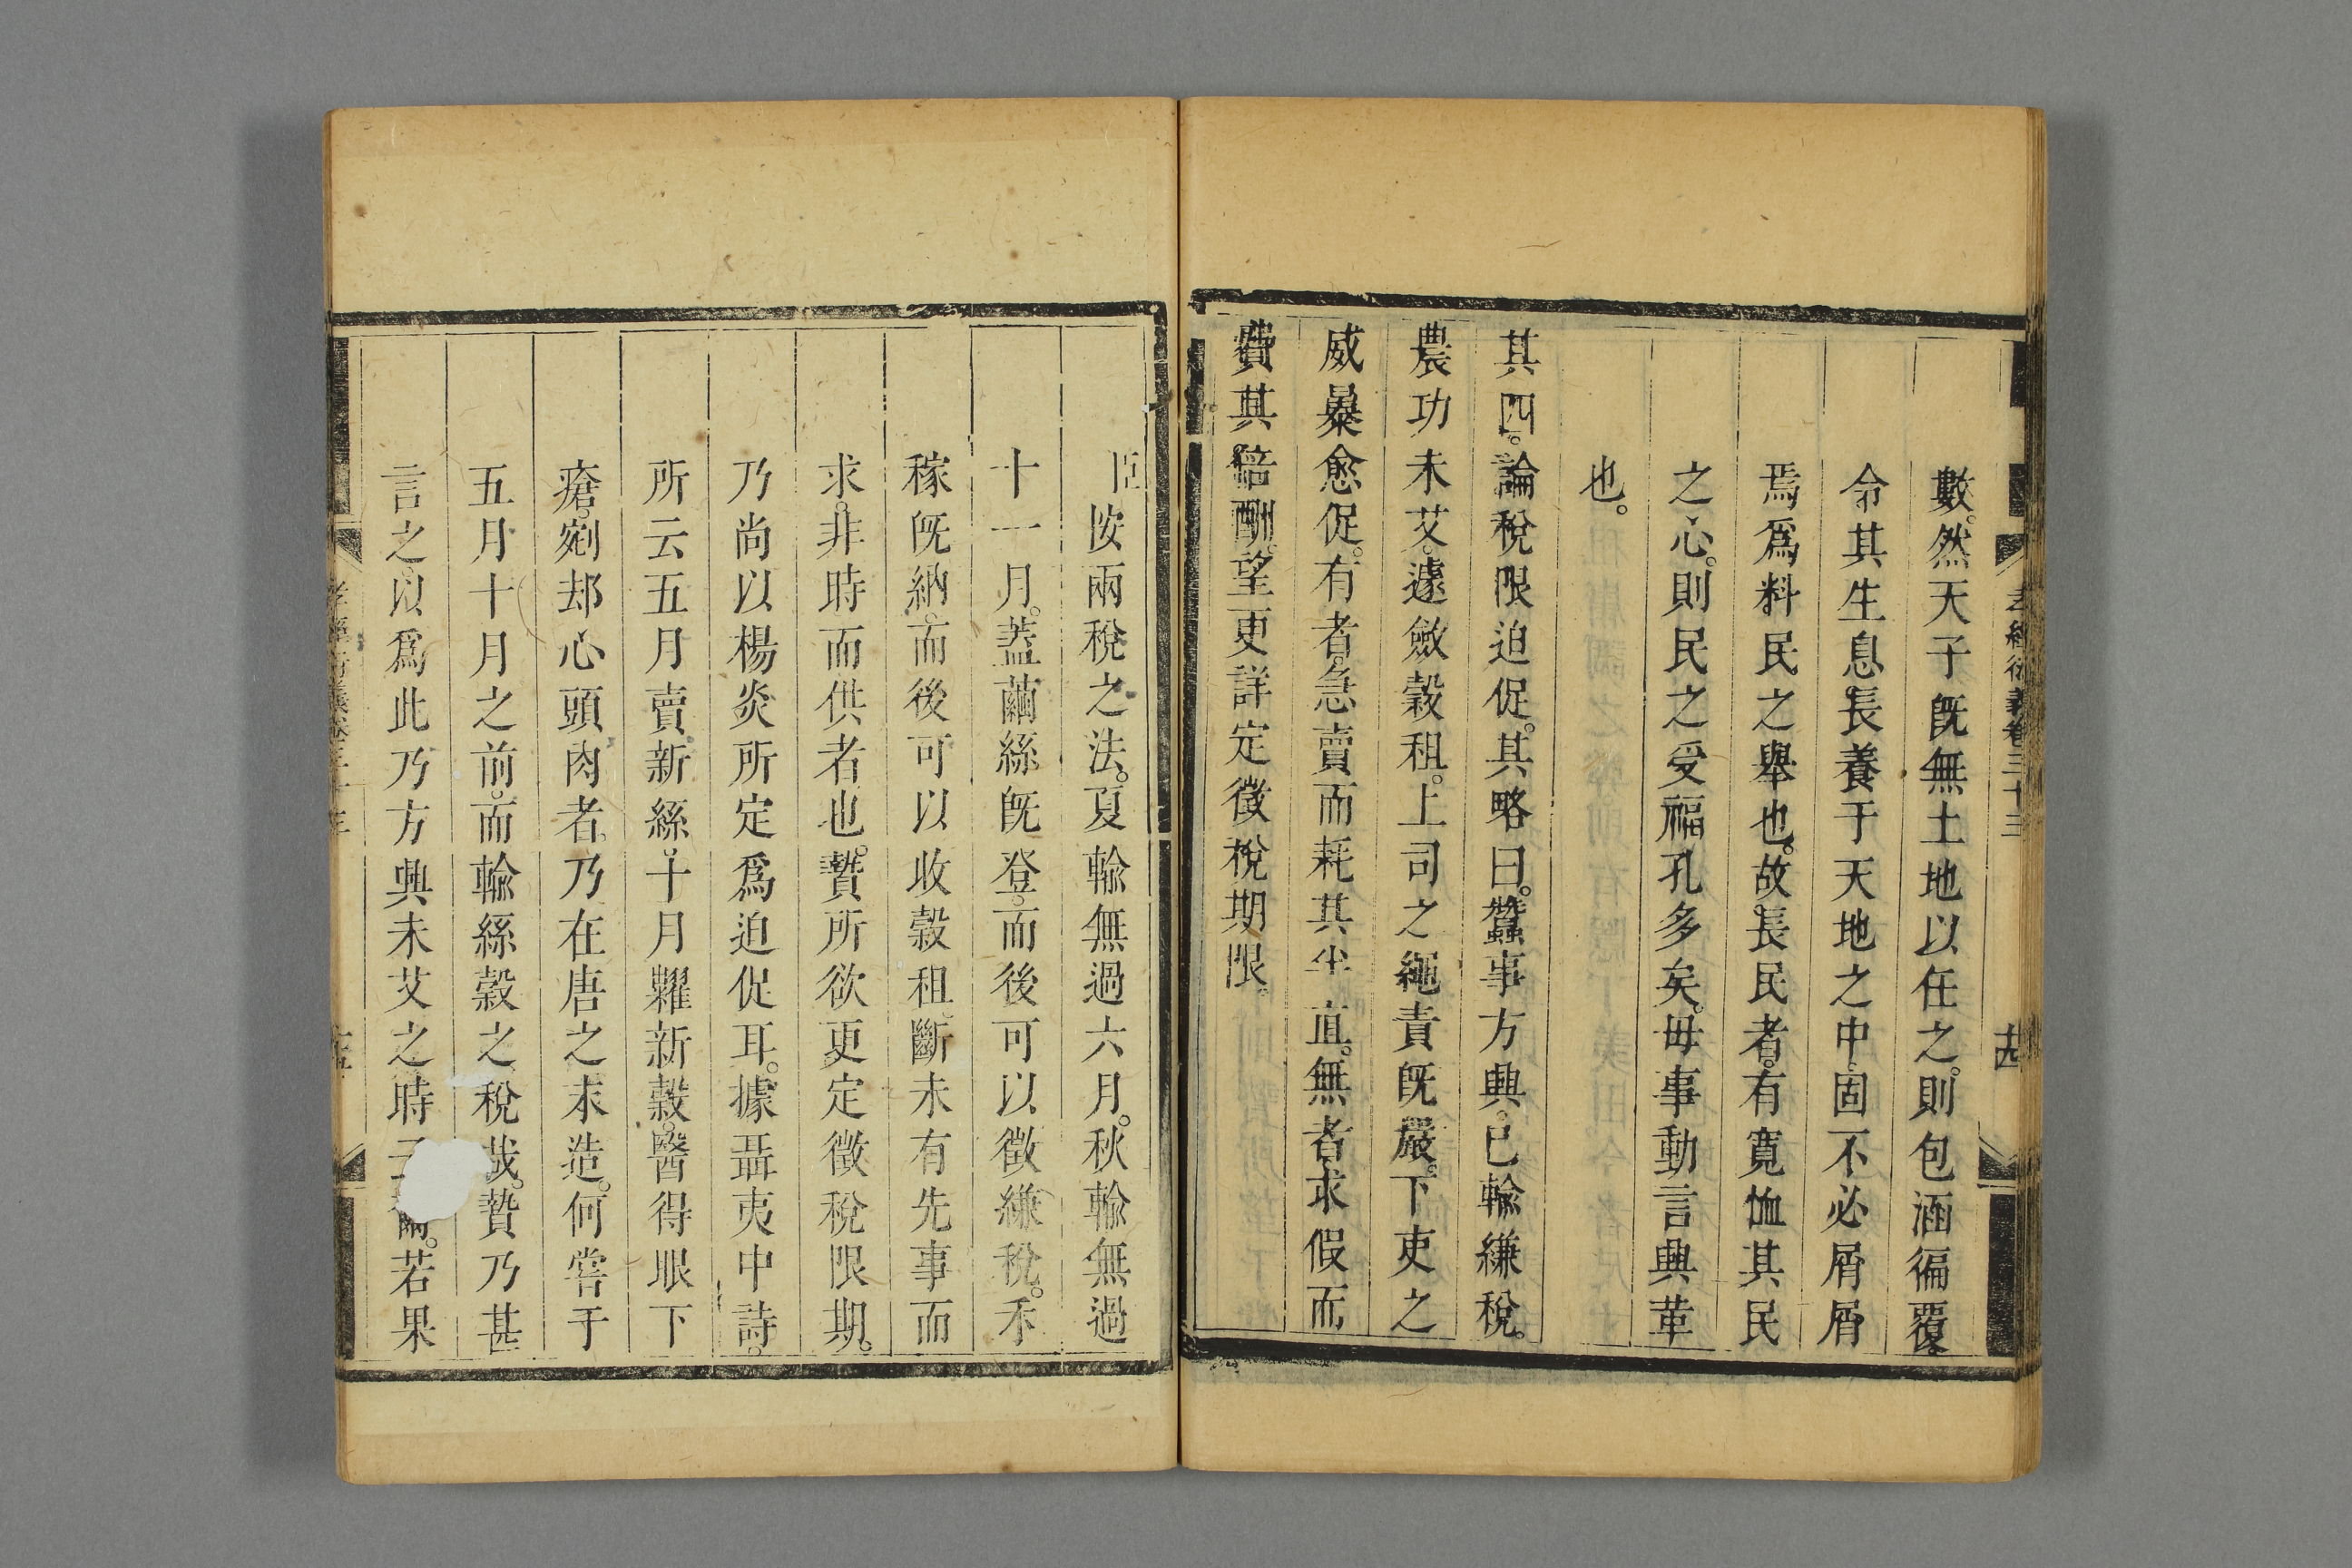 孝經衍義卷三十三
十四
數。然天子旣無土地以任之。則包涵徧覆。
令其生息。長養于天地之中。固不必屑屑
焉爲料民之舉也。故長民者。有寬恤其民
之心。則民之受福孔多矣。毋事動言興革
也。
其四。論稅限迫促。其略曰。蠶事方興。已輸縑稅。
農功未艾。遽斂穀租。上司之繩責旣嚴。下吏之
威暴愈促。有者急賣而耗其半直。無者求假而
費其倍酬。望更詳定徵稅期限。
臣按兩稅之法。夏輸無過六月。秋輸無過
十一月。蓋繭絲旣登。而後可以徵縑稅。禾
稼旣納。而後可以收穀租。斷未有先事而
求。非時而供者也。贄所欲更定徵稅限期。
乃尚以楊炎所定爲迫促耳。據聶夷中詩。
所云五月賣新絲。十月糶新穀。醫得眼下
瘡。剜却心頭肉者。乃在唐之末造。何嘗于
五月十月之前。而輸絲穀之稅哉。贄乃甚
言之。以爲此乃方興未艾之時爾。若果